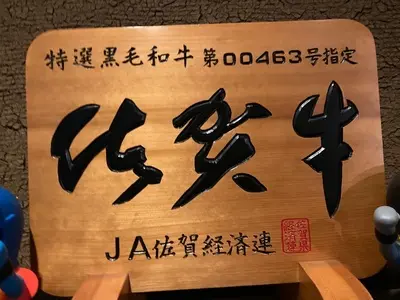 特選黒毛和牛 第00463号指定
佐賀牛
JA佐賀経済連